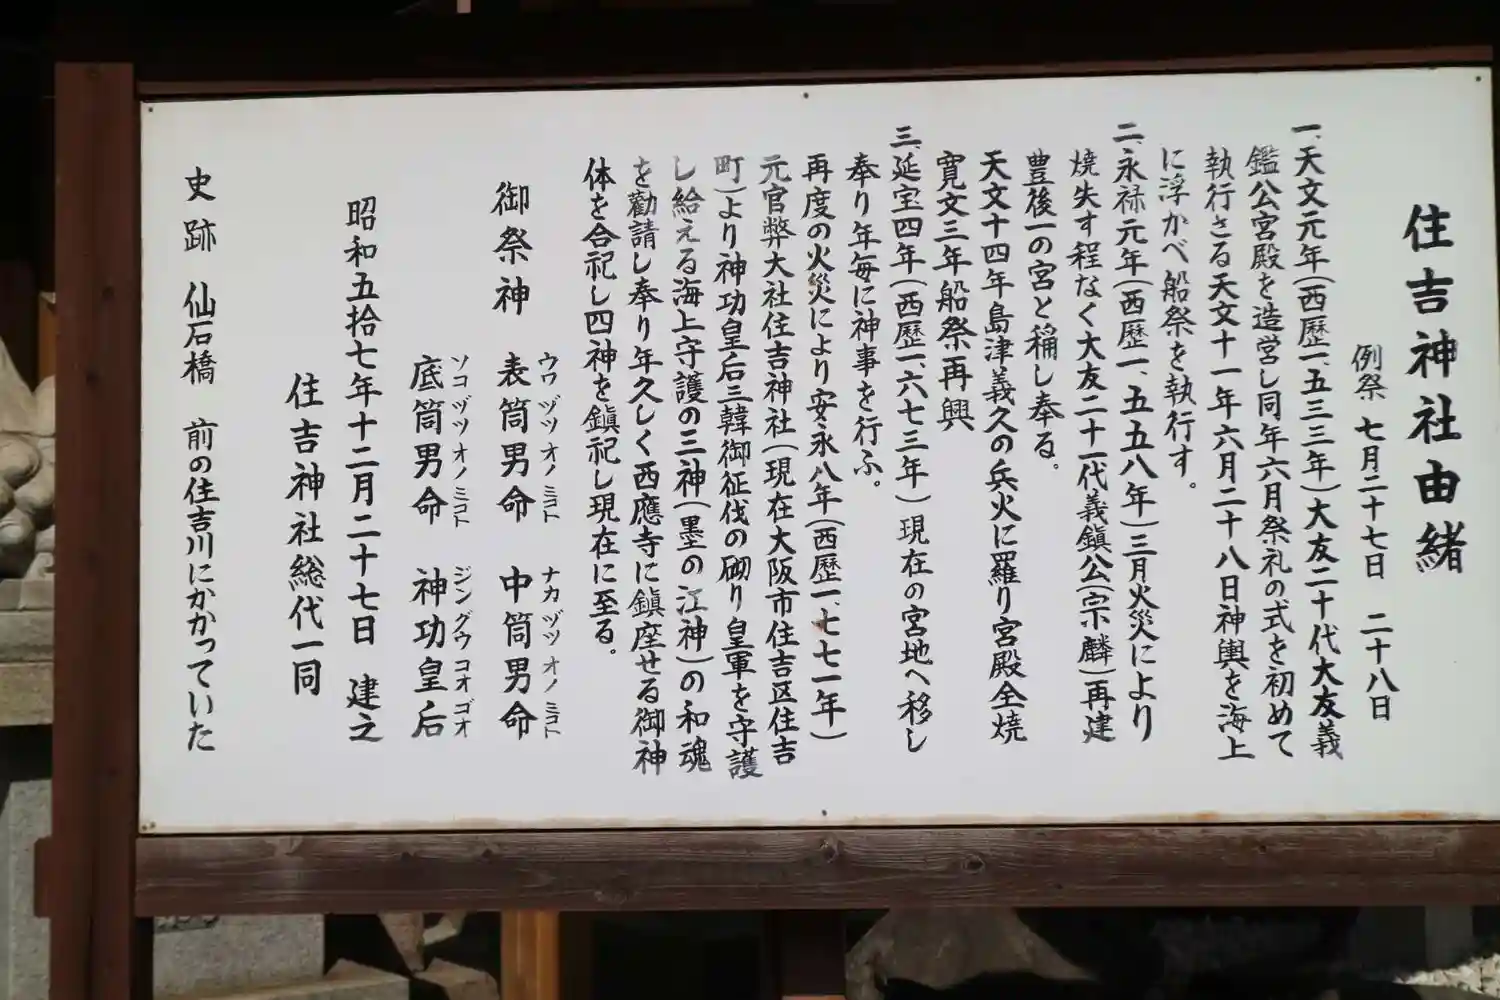 住吉神社由緒
例祭 七月二十七日 二十八日
一、天文元年(西歴一、五三三年)大友二十代大友義
鑑公宮殿を造営し同年六月祭礼の式を初めて
執行さる天文十一年六月二十八日神輿を海上
に浮かべ船祭を執行す。
二、永禄元年(西歴一、五五八年)三月火災により
焼失す程なく大友二十一代義鎮公(宗麟)再建
豊後一の宮と稱し奉る。
天文十四年島津義久の兵火に羅り宮殿全焼
寛文三年船祭再興
三、延宝四年(西歴一、六七三年)現在の宮地へ移し
奉り年毎に神事を行ふ。
再度の火災により安永八年(西歴一、七七一年)
元官弊大社住吉神社(現在大阪市住吉区住吉
町)より神功皇后三韓御征伐の砌り皇軍を守護
し給える海上守護の三神(墨の江神)の和魂
を勸請し奉り年久しく西應寺に鎮座せる御神
体を合祀し四神を鎮祀し現在に至る。
御祭神 表筒男命 中筒男命
ウワヅツオノミコト ナカヅツオノミコト
底筒男命 神功皇后
ソコヅツオノミコト ジングウコオゴオ
昭和五拾七年十二月二十七日 建之
住吉神社総代一同
史跡 仙石橋 前の住吉川にかかっていた